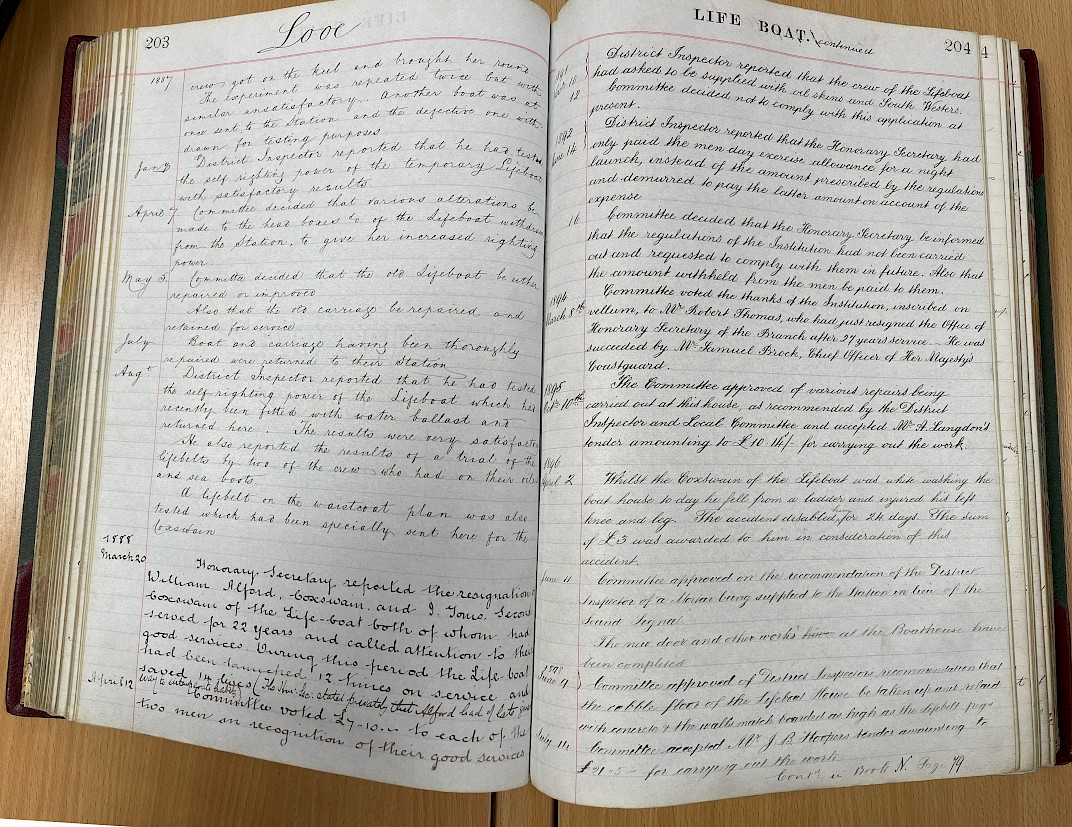 203
Looe
1887
crew got on the keel and brought her round
The experiment was repeated twice but with
similar unsatisfactory. Another boat was at
once sent to the Station and the defective one with-
drawn for testing purposes
Jan 3 District Inspector reported that he had tested
the self righting power of the temporary Lifeboat
with satisfactory results
April 7 Committee decided that various alterations be
made to the head boxes &c of the Lifeboat withdrawn
from the Station, to give her increased righting
power
May 5 Committee decided that the old Lifeboat be either
repaired or improved
Also that the old carriage be repaired and
retained for service
July Boat and carriage having been thoroughly
repaired were returned to their Station
Augt District Inspector reported that he had tested
the self-righting power of the Lifeboat which had
recently been fitted with water ballast and
returned here. The results were very satisfactory
He also reported the results of a trial of the
lifebelts by two of the crew who had on their oils
and sea boots.
A lifebelt on the waistcoat plan was also
tested which had been specially sent here for the
Coxswain
1888
March 20 Honorary Secretary reported the resignation of
William Alford, Coxswain, and J. Toms, Second
Coxswain of the Life-boat both of whom had
served for 22 years and called attention to their
good services. During this period the Life-boat
had been launched 12 times on service and
saved 14 lives (The Hon: Sec: stated privately that Alford had of late years
way to intemperate habits)
April 12 Committee voted £7-10.- to each of the
two men in recognition of their good services
LIFE BOAT. continued
204
4
12
District Inspector reported that the crew of the Lifeboat
had asked to be supplied with oil skins and South Westers.
Committee decided not to comply with this application at
present.
1892
June 14 District Inspector reported that the Honorary Secretary had
only paid the men day exercise allowance for a night
launch, instead of the amount prescribed by the regulations
and demurred to pay the latter amount on account of the
expense
16 Committee decided that the Honorary Secretary be informed
that the regulations of the Institution had not been carried
out and requested to comply with them in future. Also that
the amount withheld from the men be paid to them.
1894
March 8th Committee voted the thanks of the Institution, inscribed on
vellum, to Mr Robert Thomas, who had just resigned the Office of
Honorary Secretary of the Branch after 27 years service. He was
succeeded by Mr Samuel Brock, Chief Officer of Her Majesty's
Coastguard.
1895
Oct 10th The Committee approved of various repairs being
carried out at this house, as recommended by the District
Inspector and Local Committee and accepted Mr A. Langdon's
tender amounting to £10.14/- for carrying out the work.
1896
April 2 Whilst the Coxswain of the Lifeboat was white washing the
boat house to day he fell from a ladder and injured his left
knee and leg. The accident disabled him for 24 days. The sum
of £3 was awarded to him in consideration of this
accident.
June 11 Committee approved on the recommendation of the District
Inspector of a Mortar being supplied to the Station in lieu of the
Sound Signal
The new door and other works at the Boathouse have
been completed
1898
June 9 Committee approved of District Inspectors recommendation that
the cobble floor of the Lifeboat House be taken up and relaid
with concrete & the walls match boarded as high as the lifebelt pegs
July 14 Committee accepted Mr J. B. Hoopers tender amounting to
£21-5- for carrying out the work
Contd in Book N. Page 79